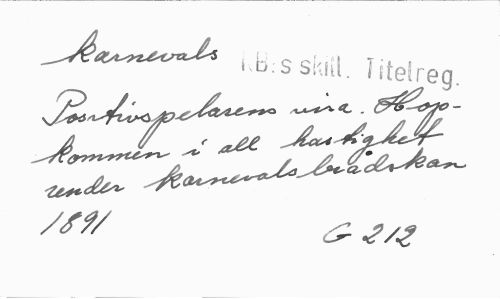 karnevals
KB:s skill. Titelreg.
Positivspelarens visa. Hop-
kommen i all hastighet
under karnevalsbrådskan
1891
G 212